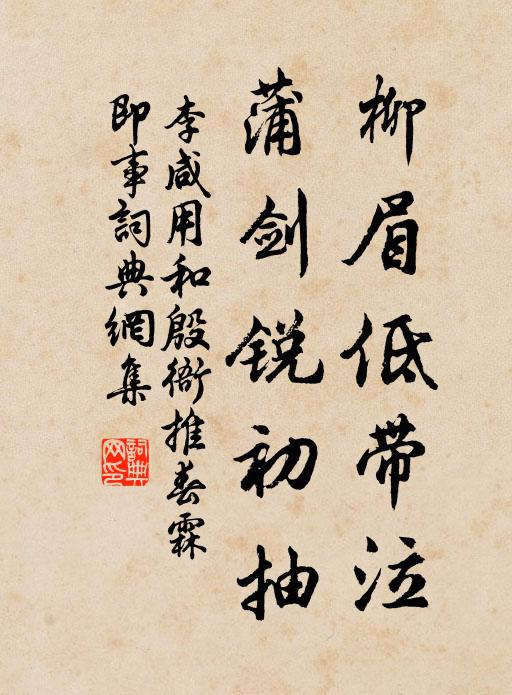 柳眉低带泣
蒲剑锐初抽
李咸用和殷衙推春霖
即事詞典網集
詞典
网印